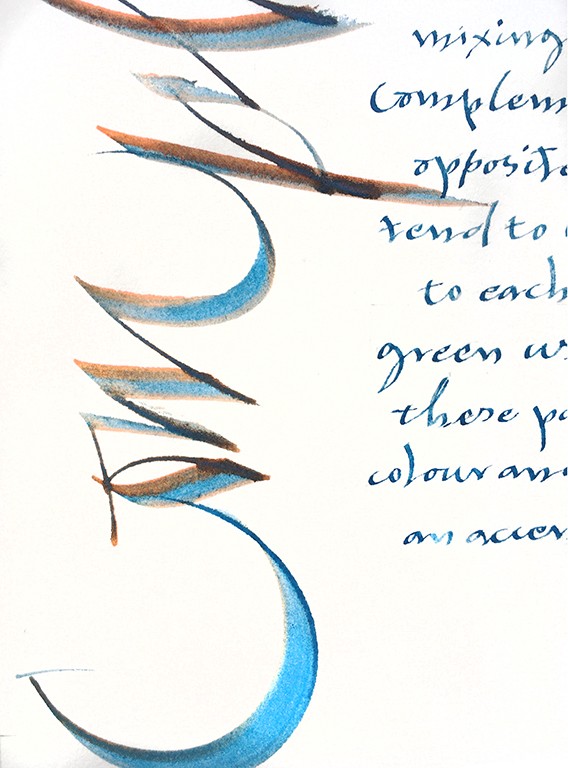 mixing
Complem
opposite
tend to
to each
green
these
colour an
an accen